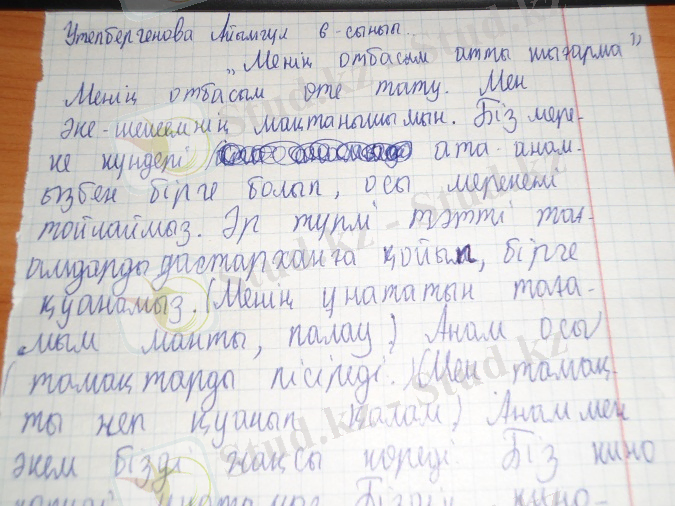 Утепбергенова Айымгул 6-сынып.
"Менің отбасым атты шығарма"
Менің отбасым өте тату. Мен
әке-шешемнің мақтанышымын. Біз мере-
ке күндері ата-анам-
ызбен бірге болып, осы мерекені
тойлаймыз. Әр түрлі тәтті тағ-
амдарды дастарханға қойып, бірге
қуанамыз. (Менің ұнататын таға-
мым манты, палау) Анам осы
тамақтарды пісіреді. (Мен тамақ-
ты жеп қуанып қалам) Анам мен
әкем бізді жақсы көреді. Біз кино
Stud.kz - Stud.kz
Stud.kz - Stud.kz
Stud.kz - Stud.kz